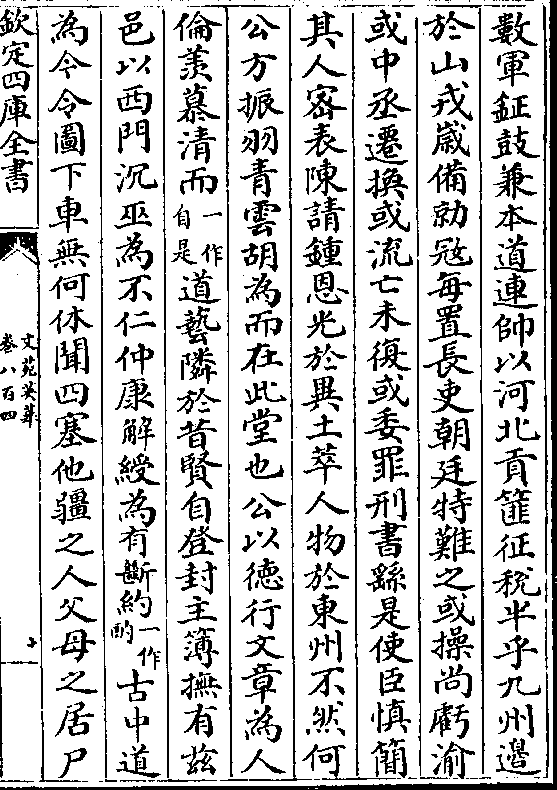 數軍鉦鼓兼本道連帥以河北貢篚征稅半乎九州邉
於山戎嵗備勍冦每置長吏朝廷特難之或操尚虧渝
或中丞遷換或流亡未復或委罪刑書繇是使臣慎簡
其人宻表陳請鍾恩光於異土萃人物於東州不然何
公方振羽青雲胡為而在此堂也公以徳行文章為人
倫羨慕清而一作自是道藝隣於昔賢自登封主簿撫有兹
邑以西門沉巫為不仁仲康解綬為有斷約一作酌古中道
為今令圖下車無何休聞四塞他疆之人父母之居尸
欽定四庫全書
文苑英華
卷八百四
十